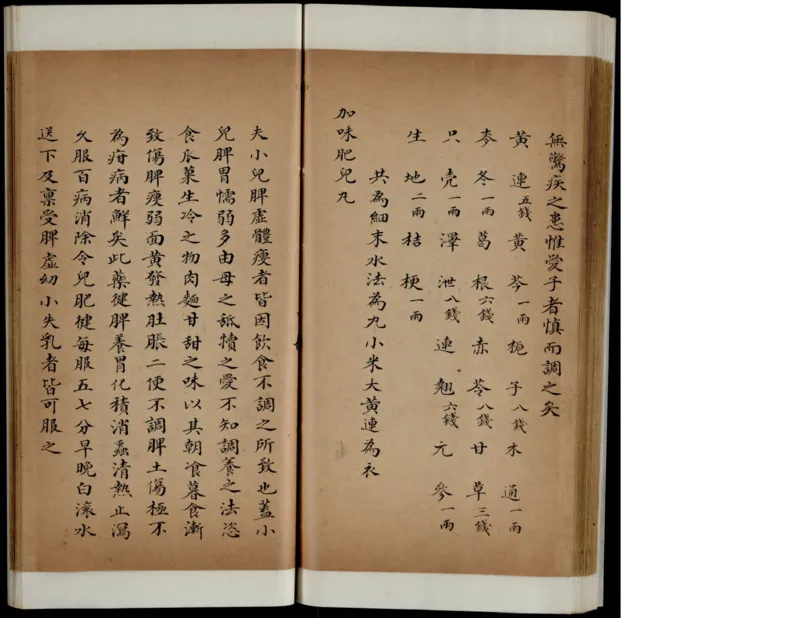 無驚疾之患惟愛子者慎而調之矣
黃連五錢黃芩一兩梔子八錢木通一兩
麥冬一兩葛根六錢赤苓八錢甘草三錢
只壳一兩澤泄八錢連翹六錢元參一兩
生地二兩桔梗一兩
共為細末水法為丸小米大黃連為衣
加味肥兒丸
夫小兒脾虛體瘦者皆因飲食不調之所致也蓋小
兒脾胃懦弱多由母之舐犢之愛不知調養之法恣
食瓜菓生冷之物肉麵甘甜之味以其朝飡暮食漸
致傷脾瘦弱面黃發熱肚脹二便不調脾土傷極不
為疳病者鮮矣此藥健脾養胃化積消蟲清熱止瀉
久服百病消除令兒肥健每服五七分早晚白滾水
送下及稟受脾虛幼小失乳者皆可服之